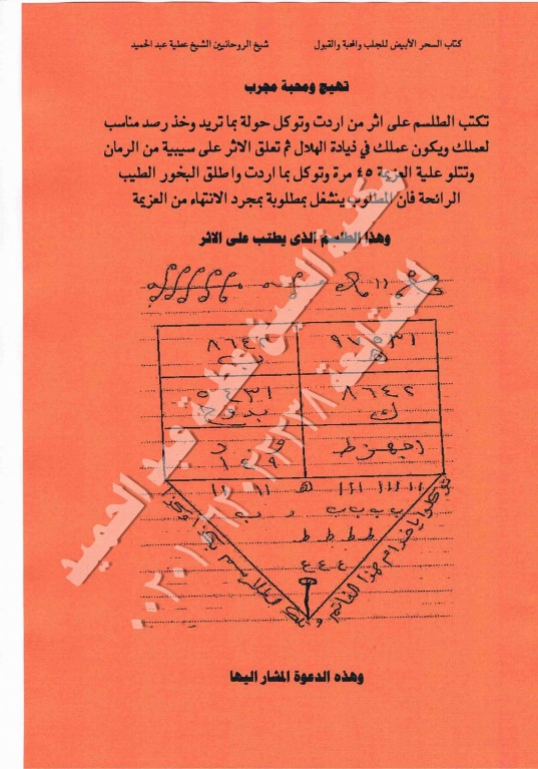 كتاب السحر الأبيض للجلب والمحبة والقبول شيخ الروحانيين الشيخ عطية عبد الحميد
تهيج ومحبة مجرب
تكتب الطلسم على اثر من اردت وتوكل حولة بما تريد وخذ رصد مناسب
لعملك ويكون عملك في زيادة الهلال ثم تعلق الاثر على سيبية من الرمان
وتتلو علية العزيمة ٤٥ مرة وتوكل بما اردت واطلق البخور الطيب
الرائحة فان المطلوب ينشغل بمطلوبة بمجرد الانتهاء من العزيمة
وهذا الطلسم الذى يطتب على الاثر
٩٧٥٣١ ٨٦٤٢
٨٦٤٢
ك
بدوح
اجهزط
ط ط ط ط
ع ع ع
توكلوا ياخدام هذا الخاتم
مكتبة الشيخ عطية عبد الحميد
وهذه الدعوة المشار اليها